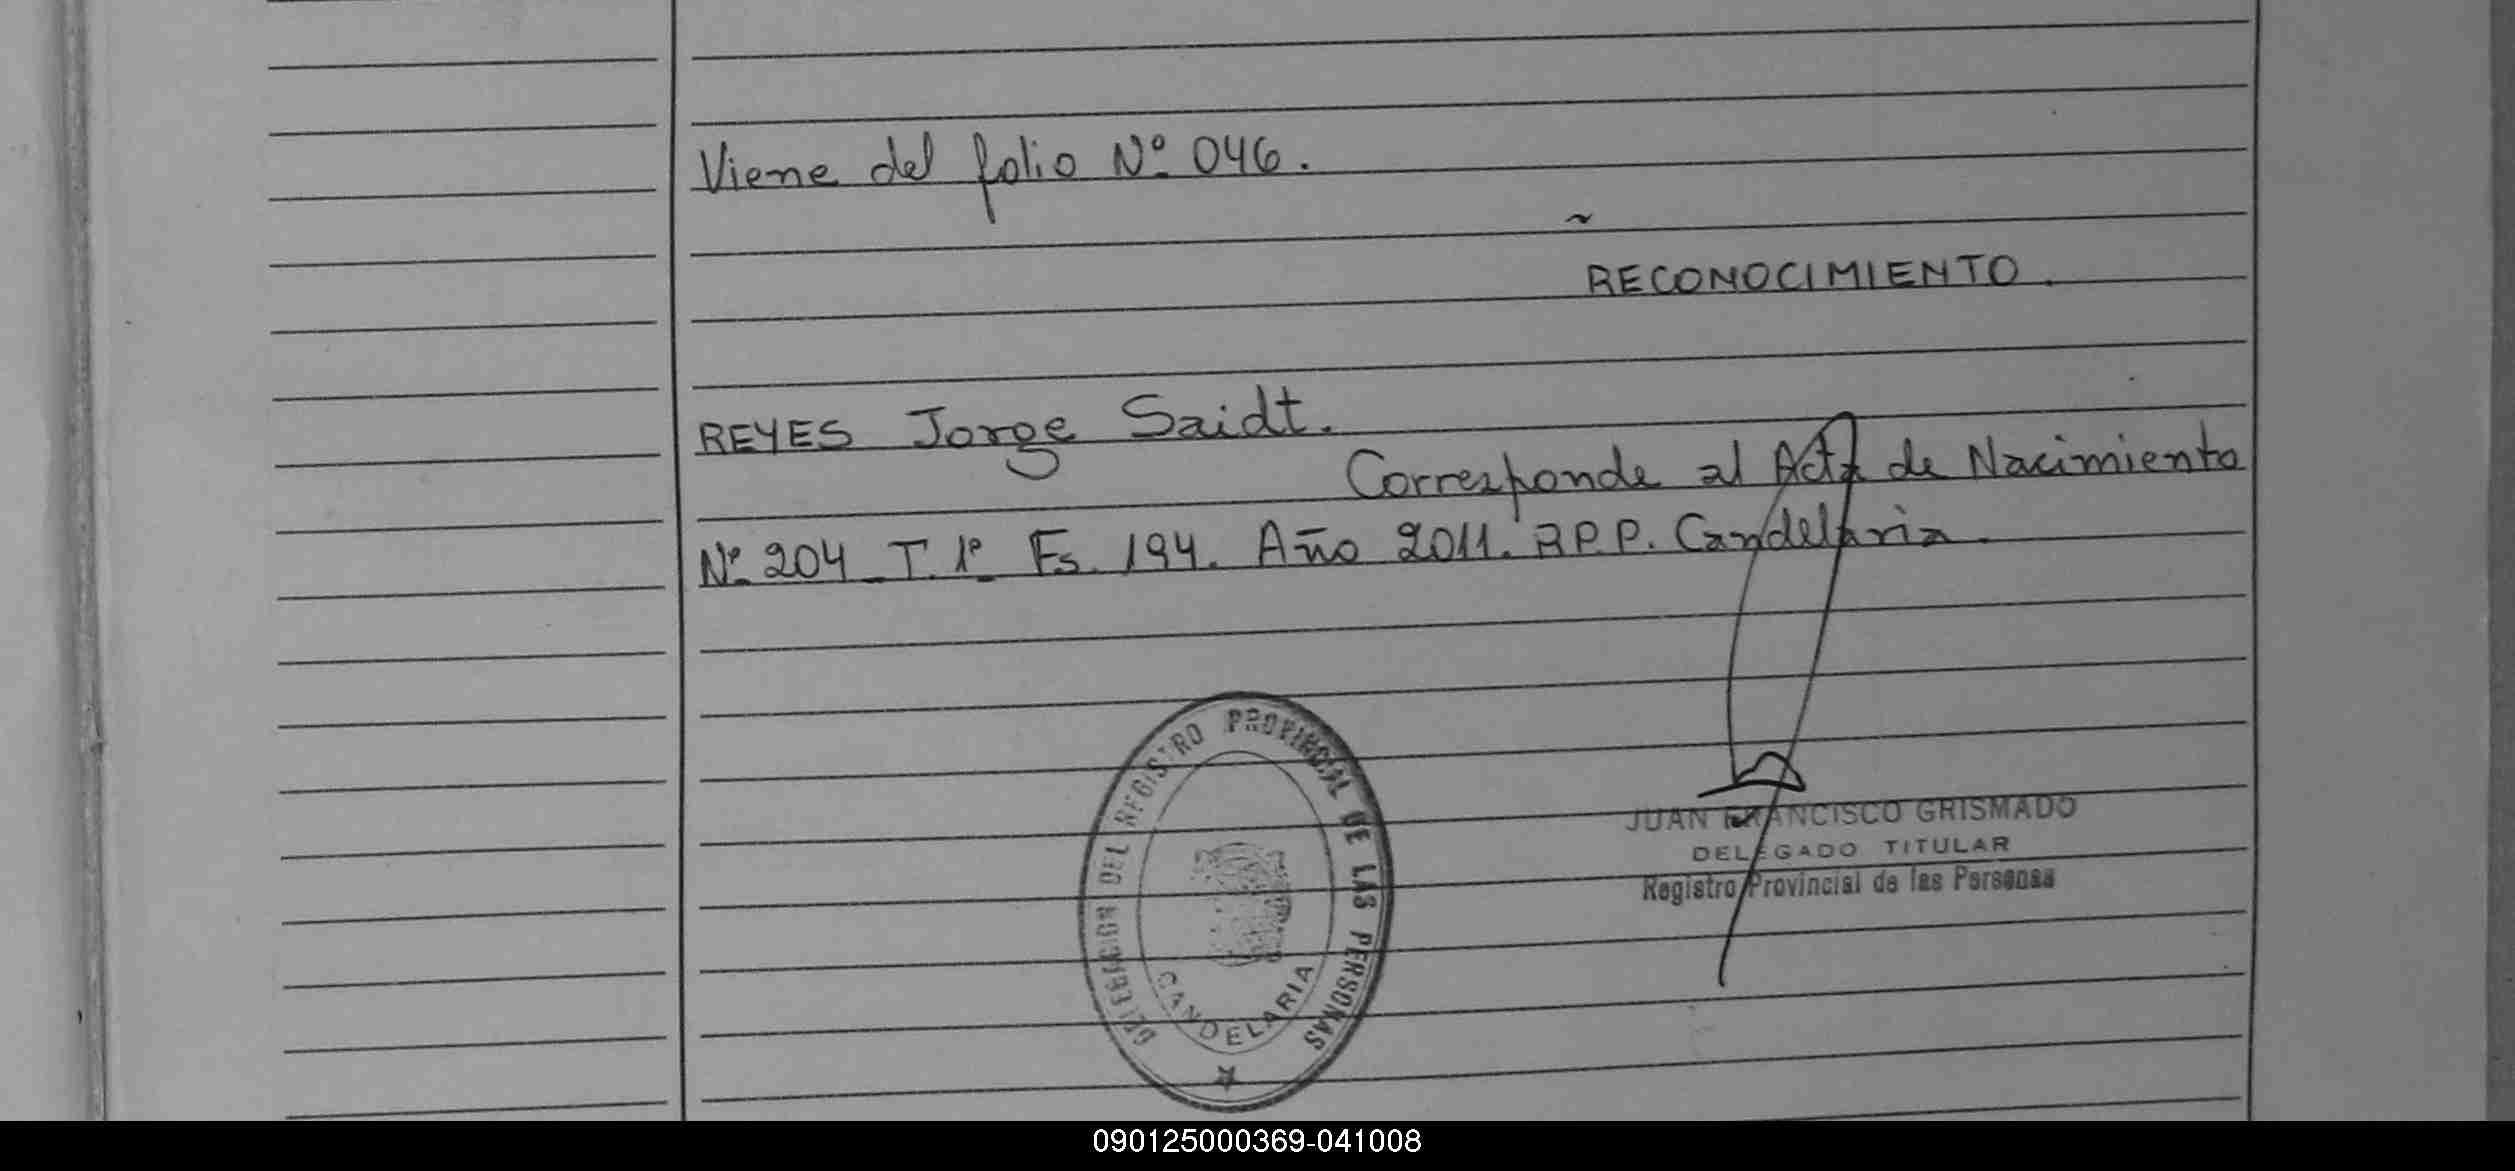 Viene del folio Nº 046.
RECONOCIMIENTO.
REYES Jorge Saidt.
Corresponde al Acta de Nacimiento
Nº 204 _ T. 1º Fs. 194. Año 2011. R.P.P. Candelaria.
DELEGACION DEL REGISTRO PROVINCIAL DE LAS PERSONAS
CANDELARIA
JUAN FRANCISCO GRISMADO
DELEGADO TITULAR
Registro Provincial de las Personas
090125000369-041008